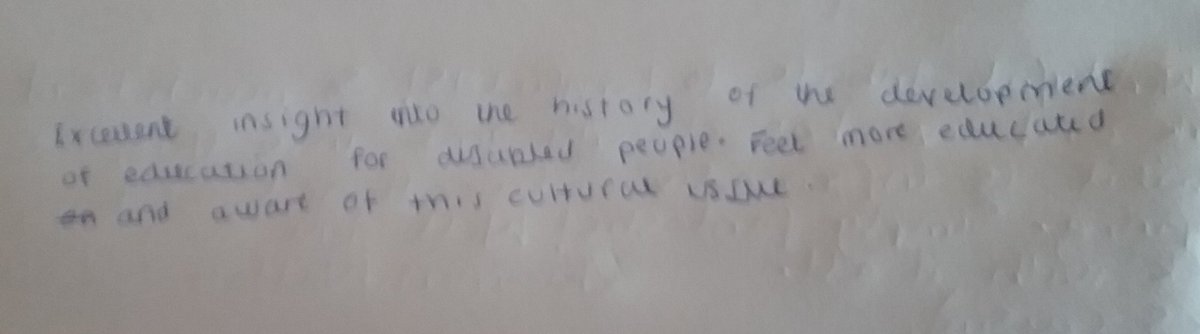 Excellent insight into the history of the development
of education for disabled people. Feel more educated
on and aware of this cultural issue.